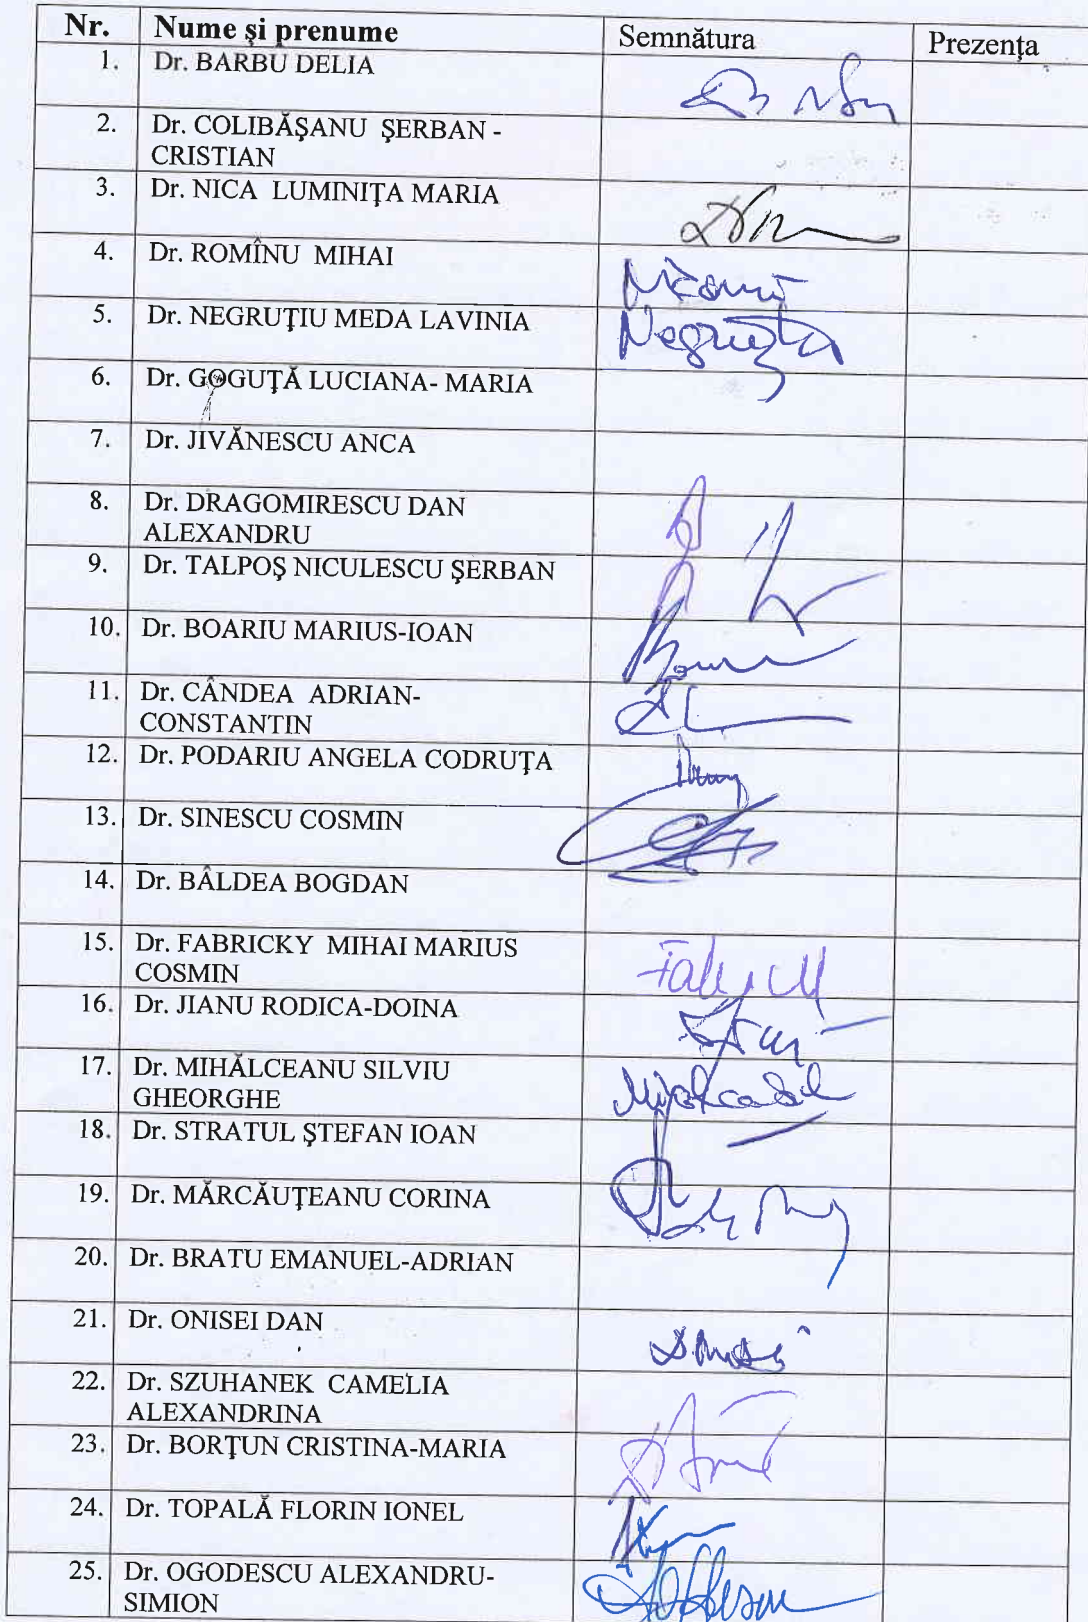 Nr. Nume şi prenume Semnătura Prezenţa
1. Dr. BARBU DELIA
2. Dr. COLIBĂŞANU ŞERBAN -
CRISTIAN
3. Dr. NICA LUMINIŢA MARIA
4. Dr. ROMÎNU MIHAI
5. Dr. NEGRUŢIU MEDA LAVINIA
6. Dr. GOGUŢĂ LUCIANA- MARIA
7. Dr. JIVĂNESCU ANCA
8. Dr. DRAGOMIRESCU DAN
ALEXANDRU
9. Dr. TALPOŞ NICULESCU ŞERBAN
10. Dr. BOARIU MARIUS-IOAN
11. Dr. CÂNDEA ADRIAN-
CONSTANTIN
12. Dr. PODARIU ANGELA CODRUŢA
13. Dr. SINESCU COSMIN
14. Dr. BÂLDEA BOGDAN
15. Dr. FABRICKY MIHAI MARIUS
COSMIN
16. Dr. JIANU RODICA-DOINA
17. Dr. MIHĂLCEANU SILVIU
GHEORGHE
18. Dr. STRATUL ŞTEFAN IOAN
19. Dr. MĂRCĂUŢEANU CORINA
20. Dr. BRATU EMANUEL-ADRIAN
21. Dr. ONISEI DAN
22. Dr. SZUHANEK CAMELIA
ALEXANDRINA
23. Dr. BORŢUN CRISTINA-MARIA
24. Dr. TOPALĂ FLORIN IONEL
25. Dr. OGODESCU ALEXANDRU-
SIMION